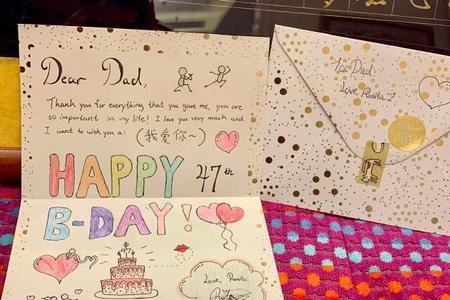 Dear Dad,
Thank you for everything that you gave me, you are
so important in my life! I love you very much and
I want to wish you a: (我爱你~)
HAPPY 47th
B-DAY!
Love,
To: Dad
Love,